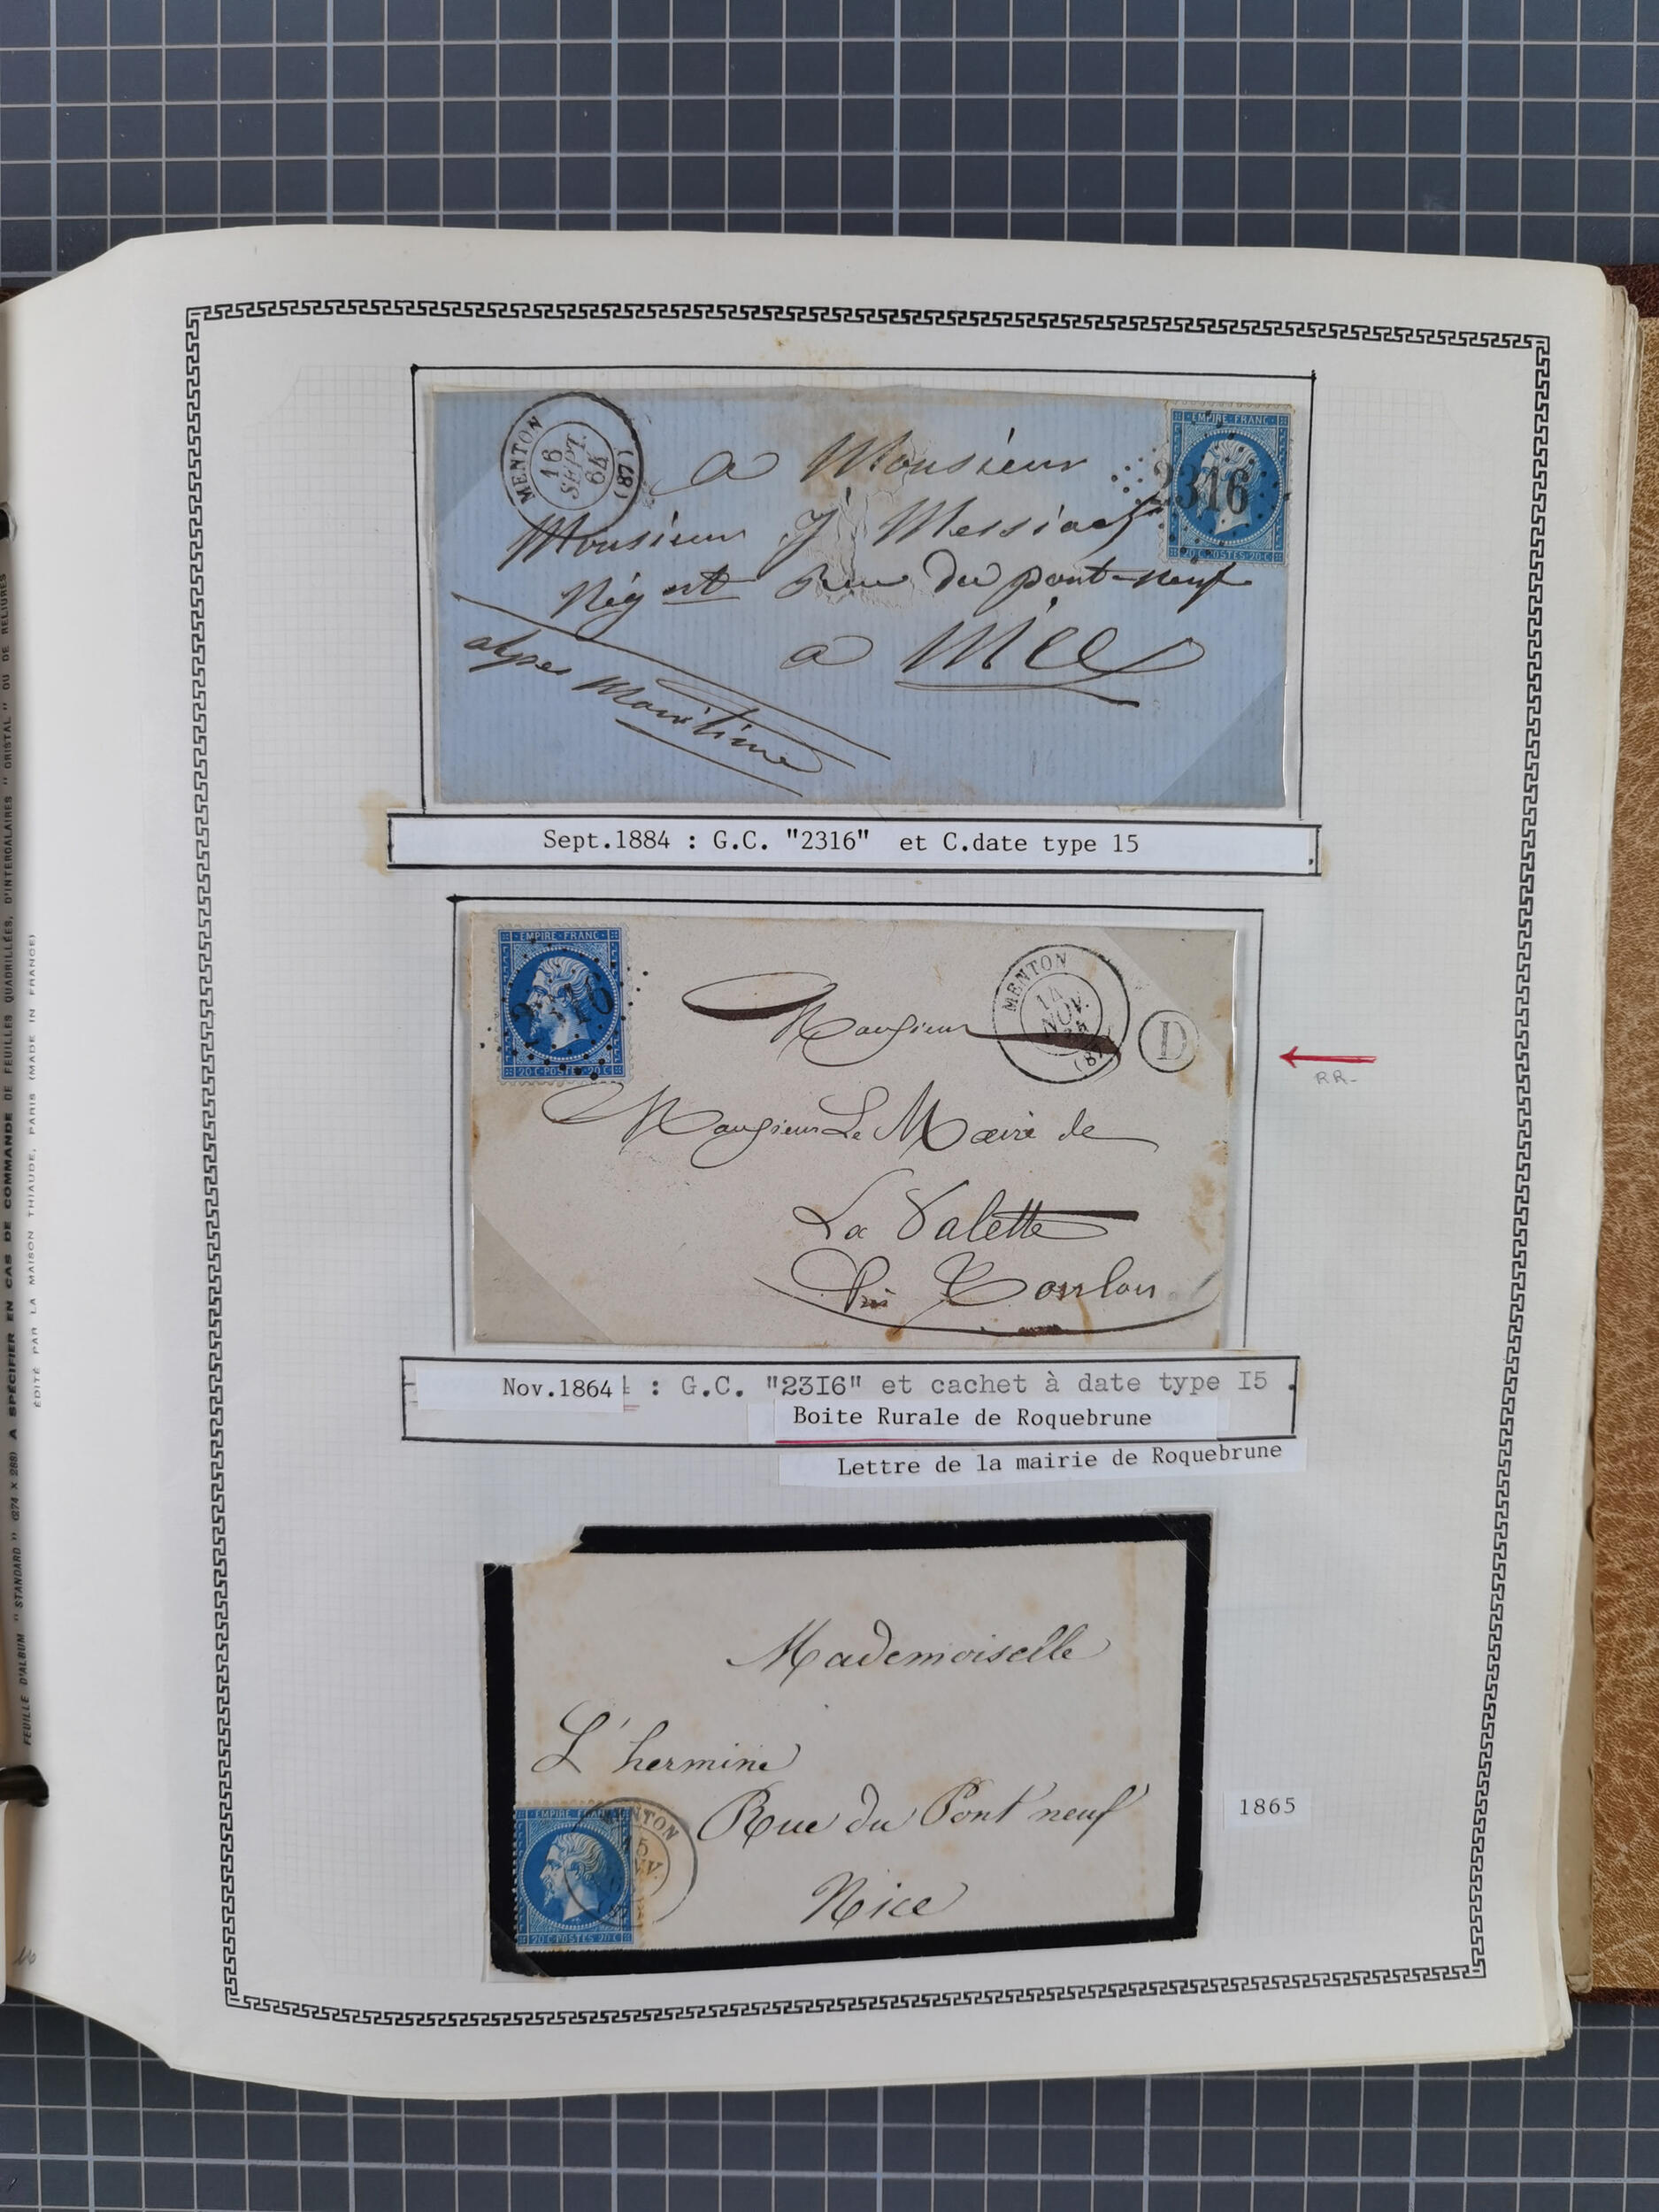 MENTON
16
SEPT.
64
(87)
EMPIRE FRANC
2316
20 C POSTES 20 C
a Monsieur
Monsieur J Messiah
Nég nt Rue du pont-neuf
a Nice
alpes Maritime
16
Sept.1884 : G.C. "2316" et C.date type 15
EMPIRE FRANC
2316
20 C POSTES 20 C
MENTON
14
NOV.
64
(87)
D
RR-
Monsieur
Monsieur Le Maire de
La Valette
Près Toulon
Nov.1864 : G.C. "23I6" et cachet à date type I5 .
Boite Rurale de Roquebrune
Lettre de la mairie de Roquebrune
Mademoiselle
L'hermine
Rue du Pont neuf
Nice
EMPIRE FRANC
20 C POSTES 20 C
MENTON
1865
FEUILLE D'ALBUM "STANDARD" (274 X 288) A SPÉCIFIER EN CAS DE COMMANDE DE FEUILLES QUADRILLÉES, D'INTERCALAIRES "CRISTAL" OU DE RELIURES
ÉDITÉ PAR LA MAISON THIAUDE, PARIS (MADE IN FRANCE)